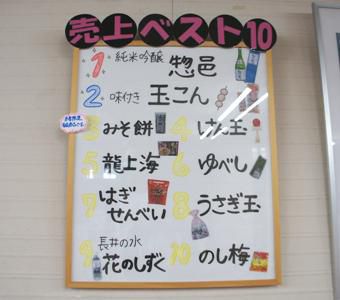 売上ベスト10
1 純米吟醸 惣邑
2 味付き 玉こん
3 みそ餅
4 けん玉
5 龍上海
6 ゆべし
7 はぎ
せんべい
8 うさぎ玉
9 長井の水
花のしずく
10 のし梅